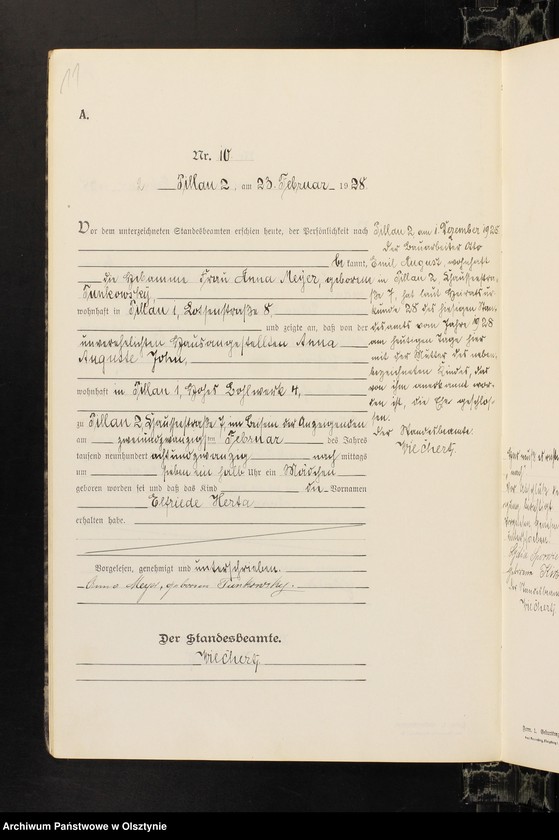 11
A.
Nr. 10
Pillau 2, am 23. Februar 1928
Vor dem unterzeichneten Standesbeamten erschien heute, der Persönlichkeit nach
be kannt,
die Hebamme Frau Anna Meyer, geborene
Tunkowsky,
wohnhaft in Pillau 1, Lotsenstraße 8,
und zeigte an, daß von der
unverehelichten Hausangestellten Anna
Auguste John,
wohnhaft in Pillau 1, Hohes Bohlwerk 4,
zu Pillau 2, Chausseestraße 7, im Beisein der Anzeigenden
am zweiundzwanzigsten Februar des Jahres
tausend neunhundert achtundzwanzig nach mittags
um sieben ein halb Uhr ein Mädchen
geboren worden sei und daß das Kind die Vornamen
Elfriede Herta
erhalten habe.
Vorgelesen, genehmigt und unterschrieben.
Anna Meyer, geborene Tunkowsky.
Der Standesbeamte.
Wiechert
Pillau 2 am 1. Dezember 1928
Der Bauarbeiter Otto
Emil August, wohnhaft
in Pillau 2 Chausseestra-
ße 7, hat laut Heiratsur-
kunde 28 des hiesigen Stan-
desamts vom Jahre 1928
am heutigen Tage hier
mit der Mutter des neben-
bezeichneten Kindes, das
von ihm anerkannt wor-
den ist, die Ehe geschlos-
sen.
Der Standesbeamte.
Wiechert.
Wiechert
Archiwum Państwowe w Olsztynie